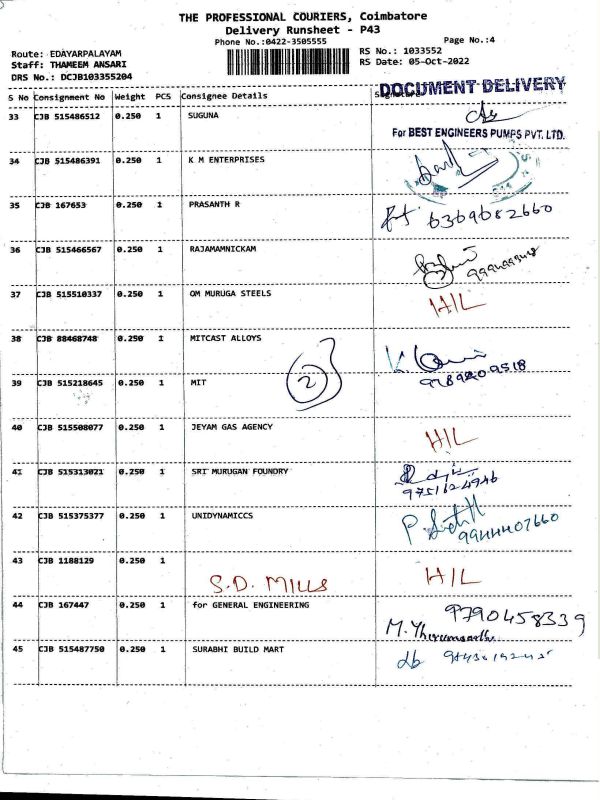 THE PROFESSIONAL COURIERS, Coimbatore
Delivery Runsheet - P43
Phone No.:0422-3505555
Page No.:4
Route: EDAYARPALAYAM
RS No.: 1033552
Staff: THAMEEM ANSARI
RS Date: 05-Oct-2022
DRS No.: DCJB103355204
DOCUMENT DELIVERY
S No Consignment No Weight PCS Consignee Details Signature
33 CJB 515486512 0.250 1 SUGUNA
For BEST ENGINEERS PUMPS PVT. LTD.
34 CJB 515486391 0.250 1 K M ENTERPRISES
35 CJB 167653 0.250 1 PRASANTH R 6369682660
36 CJB 515466567 0.250 1 RAJAMAMNICKAM
37 CJB 515510337 0.250 1 OM MURUGA STEELS H/L
38 CJB 88468748 0.250 1 MITCAST ALLOYS
39 CJB 515218645 0.250 1 MIT 2 9789209518
40 CJB 515508077 0.250 1 JEYAM GAS AGENCY H/L
41 CJB 515313021 0.250 1 SRI MURUGAN FOUNDRY
9751624946
42 CJB 515375377 0.250 1 UNIDYNAMICCS
9944407660
43 CJB 1188129 0.250 1
S.D. MILLS H/L
44 CJB 167447 0.250 1 for GENERAL ENGINEERING 9790458339
45 CJB 515487750 0.250 1 SURABHI BUILD MART